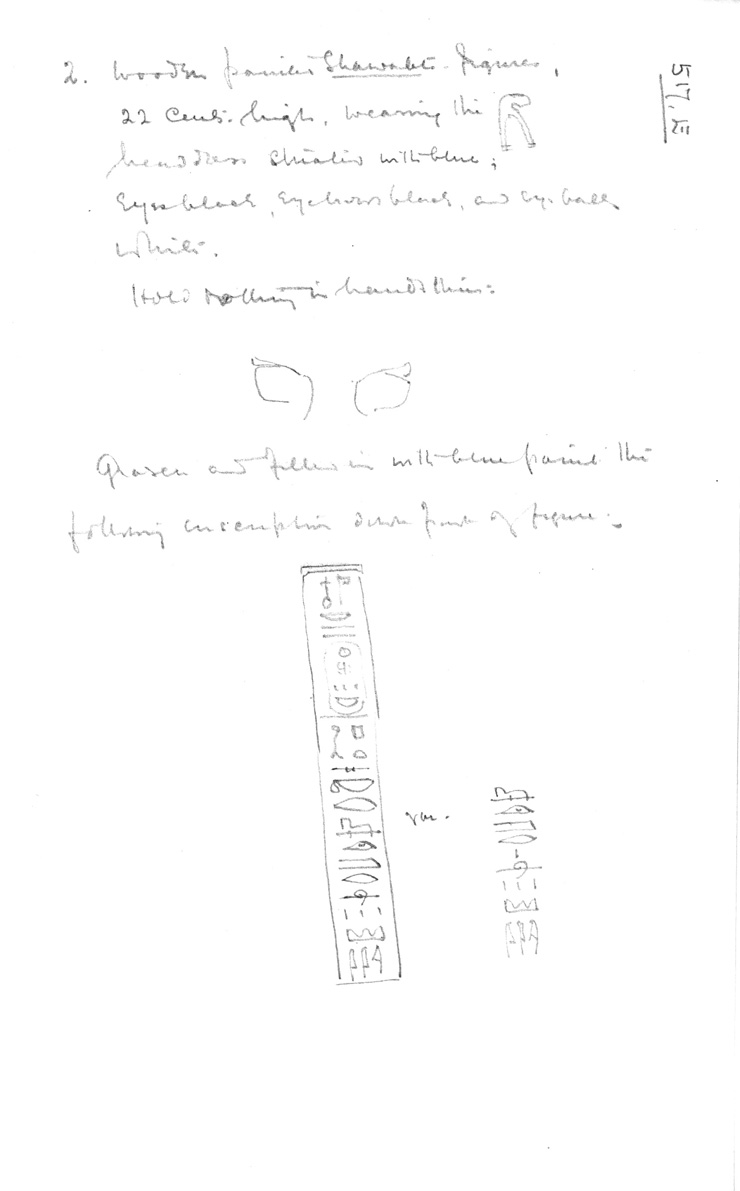 517.E
2. Wooden painted Shawabti-figures,
22 cents. high, wearing the
headdress striated with blue;
Eyes black, Eyebrows black, and eyeballs
white.
Hold nothing in hands thus:
Graven and filled in with blue paint the
following inscription down front of figure:
var.